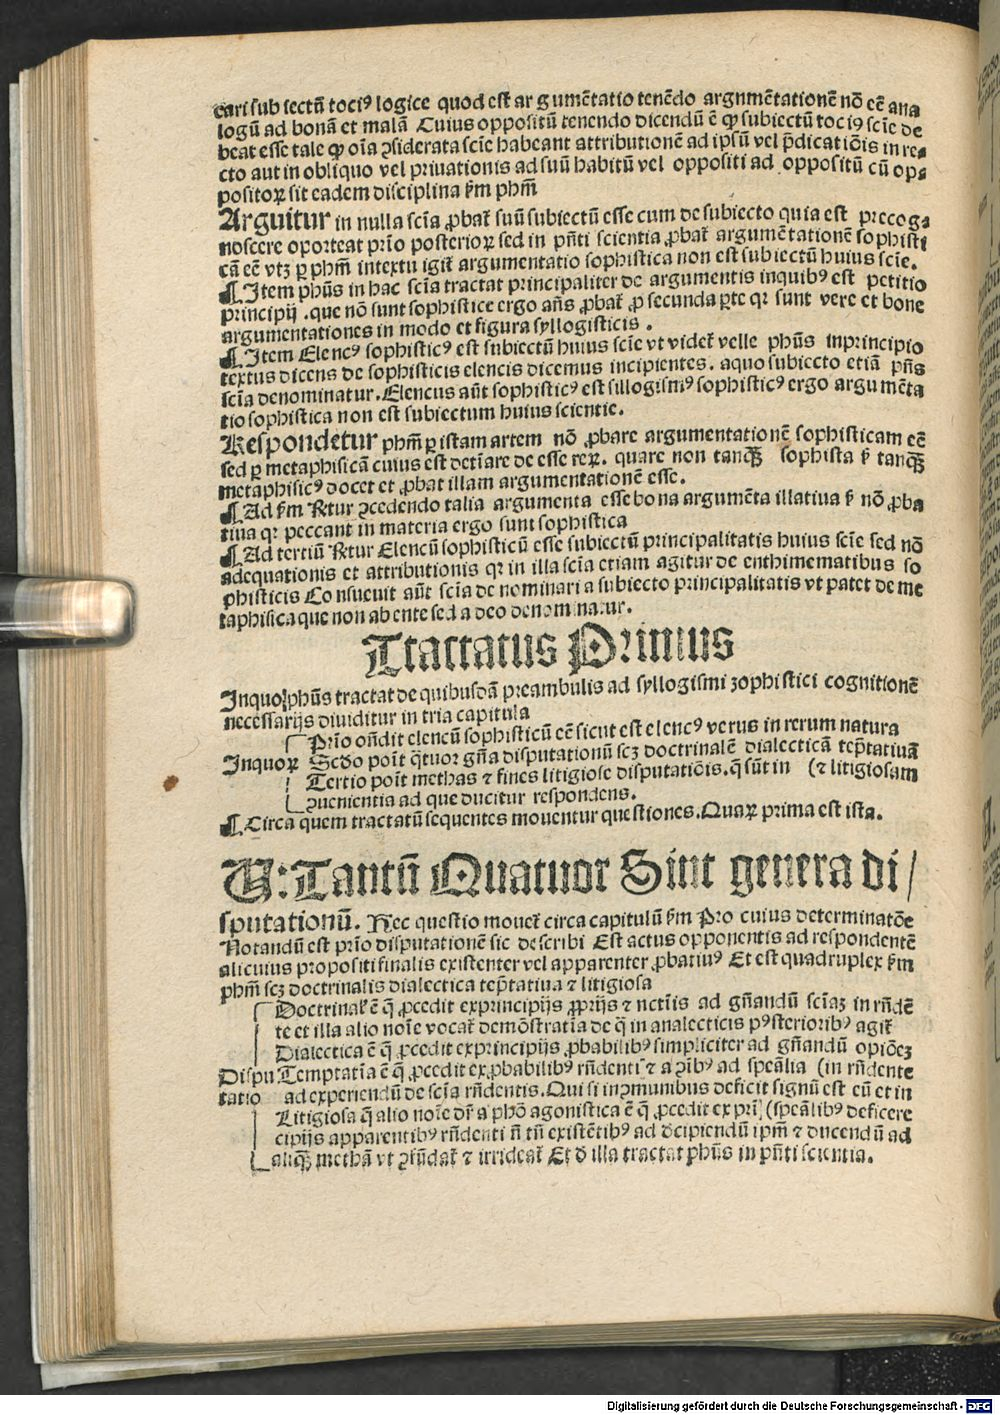 cari sub sectū toci⁹ logice quod est argumētatio tenēdo argnmētationē nō eē ana
logū ad bonā et malā Cuius oppositū tenendo dicendū ē ꝙ subiectū toci⁹ scīe de
beat esse tale ꝙ oīa ꝯsiderata scīe habeant attributionē ad ipsū vel p̄dicatiōis in re⸗
cto aut in obliquo vel priuationis ad suū habitū vel oppositi ad oppositū cū op⸗
positoꝝ sit eadem disciplina ẜm phm̄
Arguitur in nulla scīa ꝓbat᷑ suū subiectū esse cum de subiecto quia est precog⸗
noscere oporteat prīo posterioꝝ sed in pn̄ti scientia ꝓbat᷑ argumētationē sophisti
cā eē vtꝫ ꝑ phm̄ intextu igit᷑ argumentatio sophistica non est subiectū huius scīe.
¶ Item phūs in hac scīa tractat principaliter de argumentis inquib⁹ est petitio
principij .que nō sunt sophistice ergo añs ꝓbat᷑ ꝓ secunda ꝑte qꝛ sunt vere et bone
argumentationes in modo et figura syllogisticis .
¶ Item Elenc⁹ sophistic⁹ est subiectū huius scīe vt videt᷑ velle phūs inprincipio
textus dicens de sophisticis elencis dicemus incipientes. aquo subiecto etiā pn̄s
scīa denominatur. Elencus aūt sophistic⁹ est sillogism⁹ sophistic⁹ ergo argumēta
tio sophistica non est subiectum huius scientie.
Respondetur phm̄ ꝑ istam artem nō ꝓbare argumentationē sophisticam eē
sed ꝑ metaphisicā cuius est detīare de esse reꝝ. quare non tanqᷓꝫ sophista ẜ tanqᷓꝫ
metaphisic⁹ docet et ꝓbat illam argumentationē esse.
¶ Ad ẜm Rꝛtur ꝯcedendo talia argumenta esse bona argumēta illatiua ẜ nō ꝓba
tiua qꝛ peccant in materia ergo sunt sophistica
¶ Ad tertiū Rꝛtur Elencū sophisticū esse subiectū principalitatis huius scīe sed nō
adequationis et attributionis qꝛ in illa scīa etiam agitur de enthimematibus so
phisticis Consueuit aūt scīa denominari a subiecto principalitatis vt patet de me
taphisica que non ab ente sed a deo denominatur.
Tractatus Primus
Inquo phūs tractat de quibusdā preambulis ad syllogismi sophistici cognitionē
necessarijs diuiditur in tria capitula
Prīo oñdit elencū sophisticū eē sicut est elenc⁹ verus in rerum natura
Inquoꝝ Scdo poīt q̄tuor gn̄a disputationū scꝫ doctrinalē dialecticā tēptatiuā
Tertio poīt methas ⁊ fines litigiose disputatiōis. q̄ sūt in (⁊ litigiosam
ꝯuenientia ad que ducitur respondens.
¶ Circa quem tractatū sequentes mouentur questiones. Quaꝝ prima est ista.
U: Tantū Quatuor Sint genera di/
sputationū. Hec questio mouet᷑ circa capitulū ẜm Pro cuius determinatōe
Notandū est prīo disputationē sic describi Est actus opponentis ad respondentē
alicuius propositi finalis existenter vel apparenter ꝓbatiu⁹ Et est quadruplex ẜm
phm̄ scꝫ doctrinalis dialectica tēptatiua ⁊ litigiosa
Doctrinal᷑ ē q̄ ꝓcedit exprincipijs ꝓprijs ⁊ nc̄tīis ad gn̄andū scīaꝫ in rn̄dē
te et illa alio noīe vocat᷑ demōstratīa de q̄ in analecticis p⁹steriorib⁹ agit᷑
Dialectica ē q̄ ꝓcedit exprincipijs ꝓbabilib⁹ simpliciter ad gn̄andū opiōeꝫ
Dispu Temptatīa ē q̄ ꝓcedit ex ꝓbabilib⁹ rn̄denti ⁊ a ꝯib⁹ ad speālia (in rn̄dente
tatio ad experiendū de scīa rn̄dentis. Qui si inꝯmunibus deficit signū est eū et in
Litigiosa q̄ alio noīe dr̄ a phō agonistica ē q̄ ꝓcedit ex prī (speālib⁹ deficere
cipijs apparentib⁹ rn̄denti n̄ tn̄ existētib⁹ ad decipiendū ipm̄ ⁊ ducendū ad
aliqᷓꝫ methā vt ꝯfūdat᷑ ⁊ irrideat᷑ Et d̄ illa tractat phūs in pn̄ti scientia.
Digitalisierung gefördert durch die Deutsche Forschungsgemeinschaft - DFG